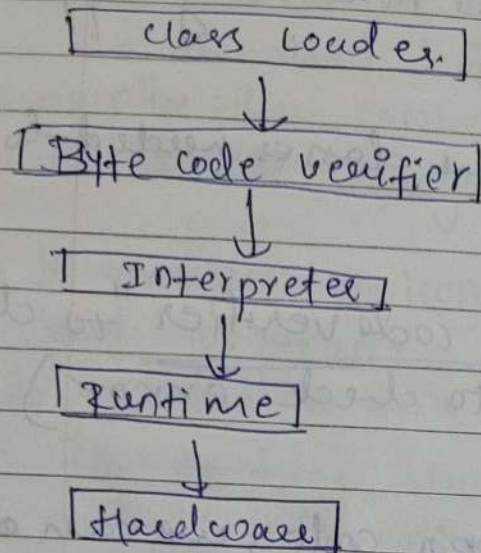 Class Loader.
Byte code verifier
Interpreter
Runtime
Hardware